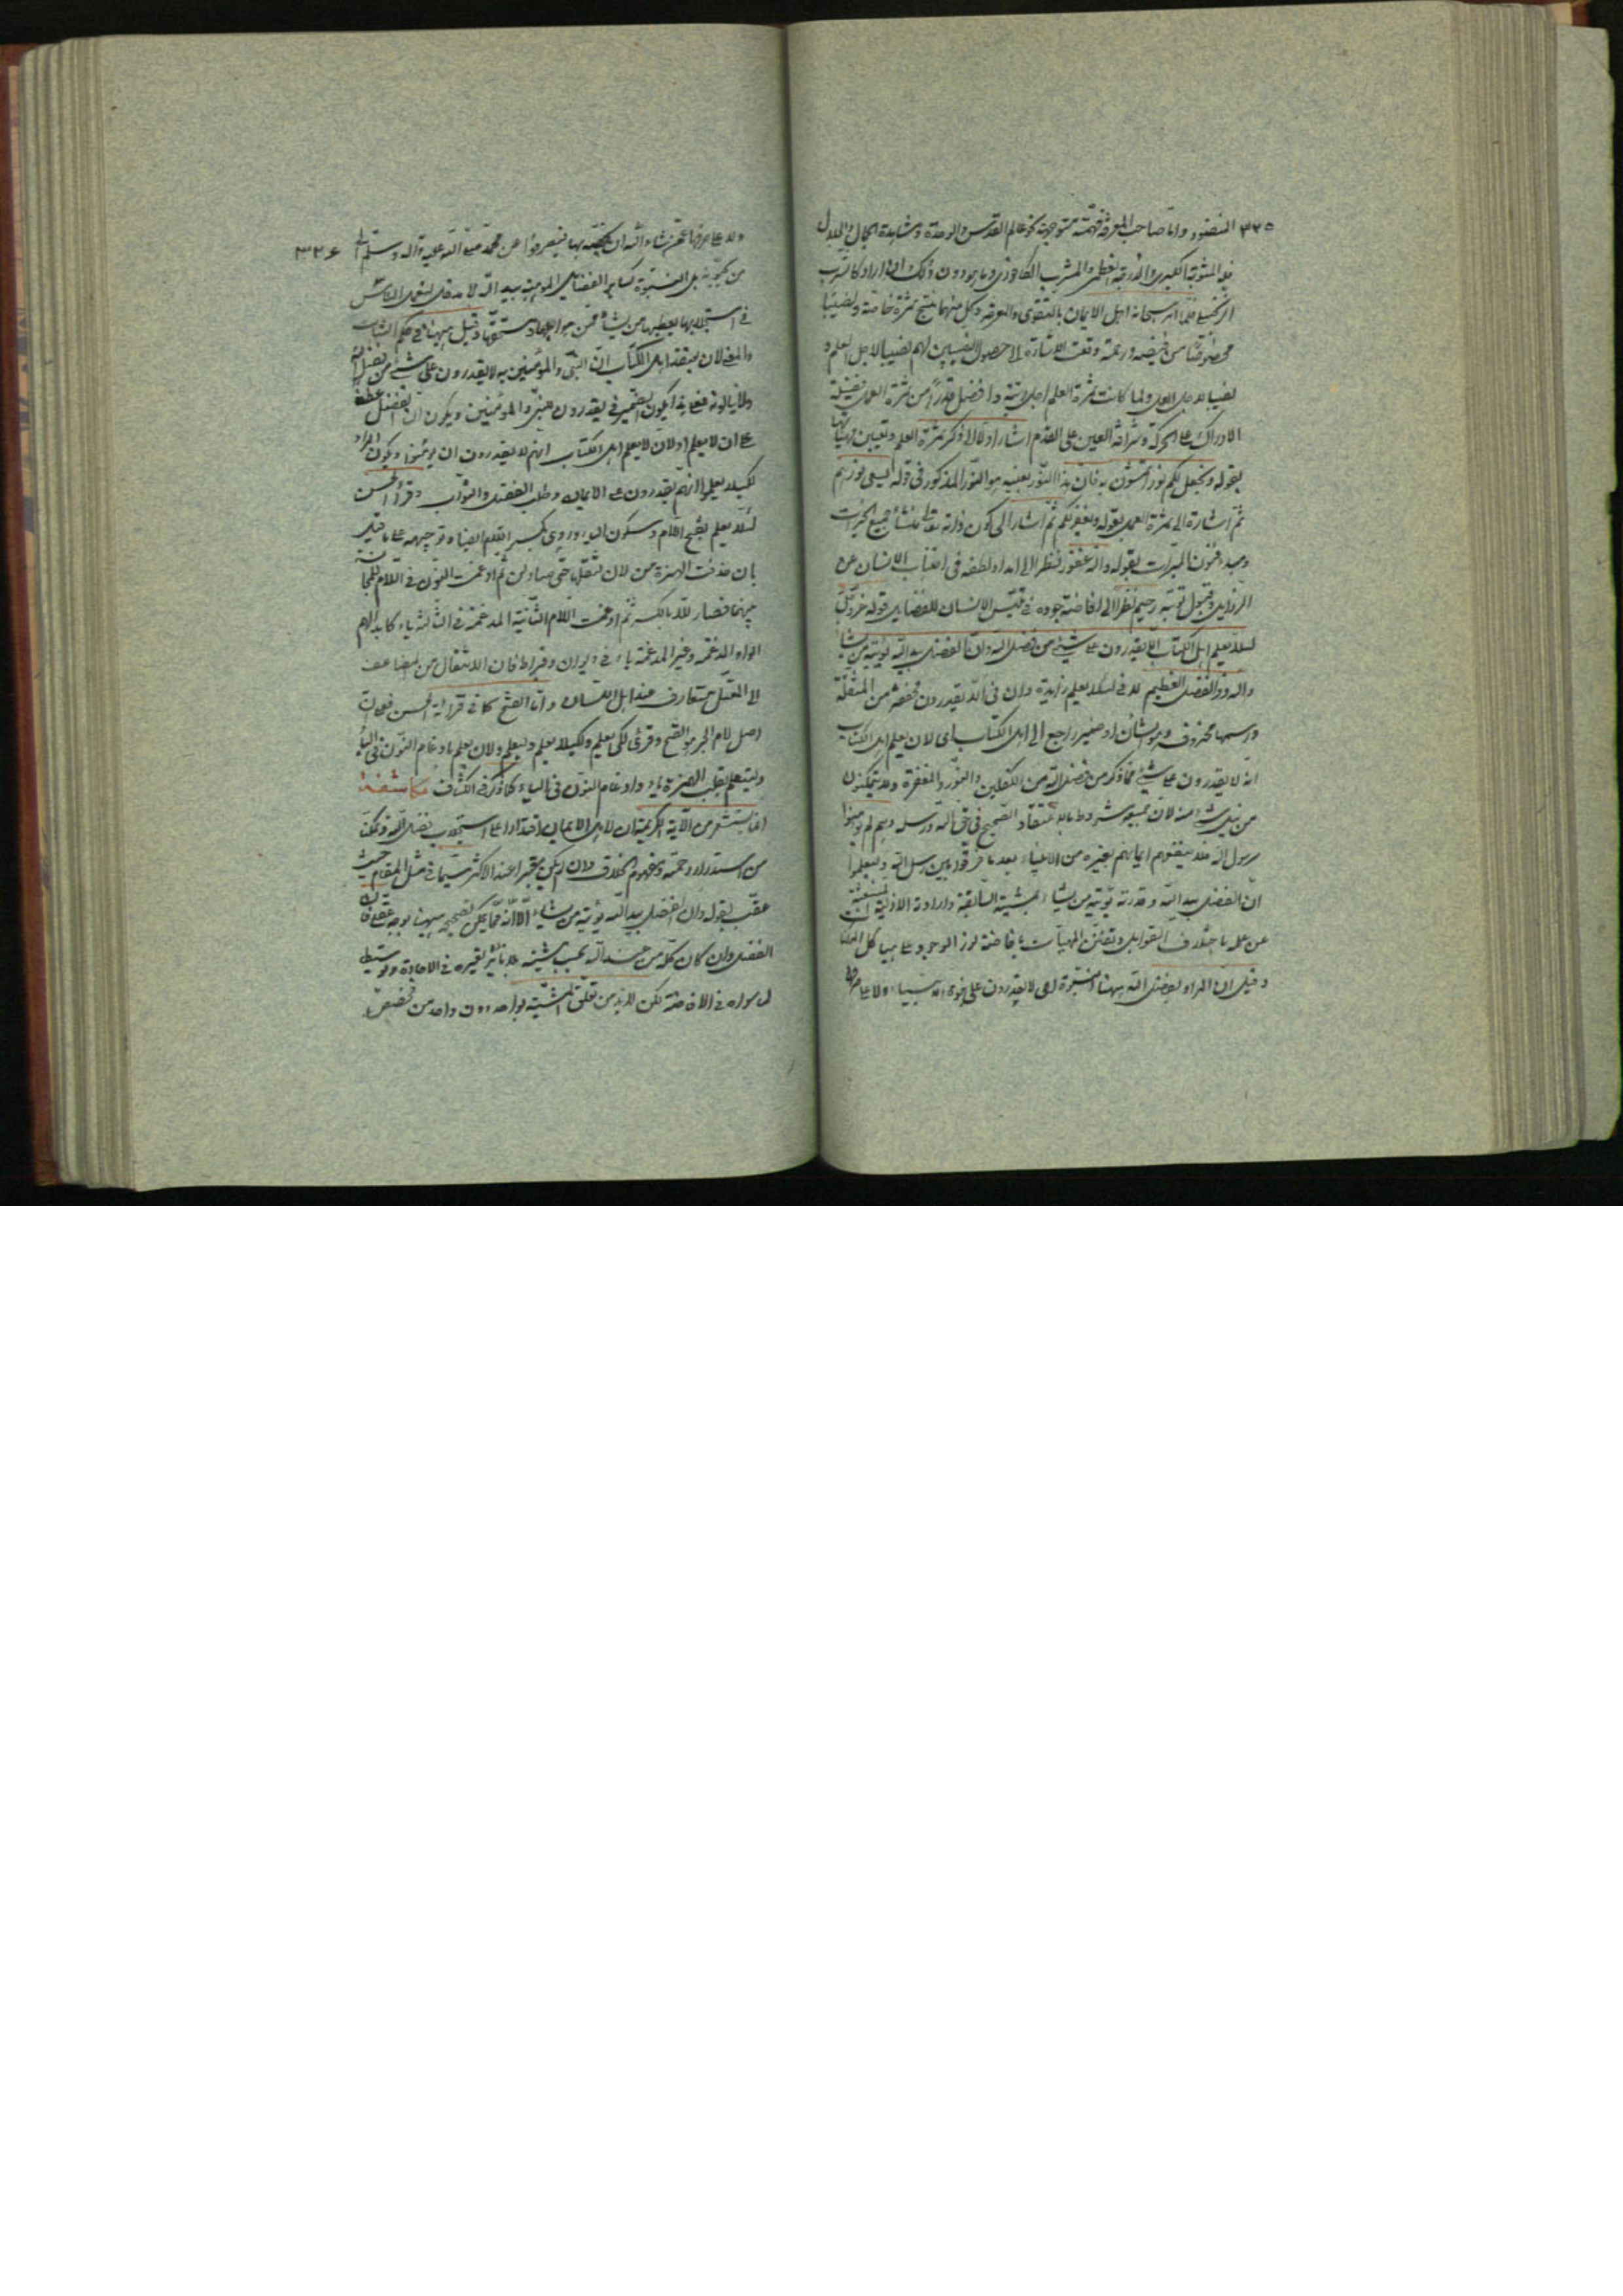 ٣٢٥ المنضود واما صاحب المعرفة فهمته متوجهة نحو عالم القدس والوحدة ومشاهدة الجمال والجلال
فله المثوبة الكبرى والدرجة العظمى والمشرب الكافوري وما هو دون ذلك ان اراد كان شرب
الزنجبيل فلما امر سبحانه اهل الايمان بالتقوى والمعرفة وكل منهما ينتج ثمرة خاصة ونصيبا
مخصوصا من فيضه ورحمته وقعت الاشارة الى حصول النصيبين لهم نصيبا لاجل العلم و
نصيبا لاجل العمل ولما كانت ثمرة العلم اجل رتبة وافضل قدرا من ثمرة العمل بفضيلة
الادراك على الحركة وشرافة العين على القدم اشار اولا الى ذكر ثمرة العلم وتعيين مهيأتها
بقوله ويجعل لكم نورا تمشون به فان هذا النور بعينه هو النور المذكور في قوله يسعى نورهم
ثم اشارة الى ثمرة العمل بقوله ويغفر لكم ثم اشار الى كون ذاته تعالى منشأ جميع الخيرات
ومبدء فنون المبرات بقوله والله غفور فنظرا الى امداد لطفه في اجتناب الانسان عن
الرذايل وقبول توبته رحيم نظرا الى افاضة جوده في تلبس الانسان للفضايل قوله عز وجل
لئلا يعلم اهل الكتاب الا يقدرون على شيء من فضل الله وان الفضل بيد الله يؤتيه من يشاء
والله ذو الفضل العظيم لا في لئلا يعلم زايدة وان في الا يقدرون مخففة من المثقلة
واسمها محذوف وهو الشأن او ضمير راجع الى اهل الكتاب اى لان يعلم اهل الكتاب
انه لا يقدرون على شيء مما ذكر من فضل الله من الكفلين والنور والمغفرة ولا يتمكنون
من نيل شيء منه لان جميعه مشروط بالاعتقاد الصحيح في حق الله ورسله وهم لم يؤمنوا
برسول الله فلا ينفعهم ايمانهم بغيره من الانبياء بعد ما فرقوا بين رسل الله وليعلموا
ان الفضل بيد الله وقدرته يؤتيه من يشاء بمشيته السابقة وارادته الازلية المنبعثة
عن علمه باختلاف القوابل وتفنن المهيات بافاضة نور الوجود على هياكل الممكنات
وقيل ان المراد بفضل الله ههنا النبوة اى لا يقدرون على نبوة الانبياء ولا على صرفها
ولا على صرفها عمن شاء الله ان يخصه بها فيصرفوا عن محمد صلى الله عليه وآله وسلم الى ٣٢٦
من يحبونه بل النبوة كساير الفضايل الموهبية بيد الله لا مدخل لتعمل الناس
في استجلابها يعطيها من يشاء ممن هو اهلها ومستحقها وقيل لا ههنا في حكم الثبات
والمعنى لان يعتقد اهل الكتاب ان النبي والمؤمنين به لا يقدرون على شيء من فضل الله
ولا ينالونه فعلى هذا يكون الضمير في يقدرون للنبي والمؤمنين ويكون ان الفضل عطف
على ان لا يعلم او لان لا يعلم اهل الكتاب انهم لا يقدرون ان يؤمنوا ويكون المراد
لكيلا يعلموا انهم يقدرون على الايمان وطلب الفضل والثواب وقرأ الحسن
لئلا يعلم بفتح اللام وسكون الياء وروى بكسر اللام ايضا وتوجيهه على ما قيل
بان حذفت الهمزة من لان لثقلها حتى صار لن ثم ادغمت النون في اللام للمجانسة
بينهما فصار للا بالكسر ثم ادغمت اللام الثانية المدغمة في الثالثة ياء كابدالهم
الواو المدغمة وغير المدغمة ياء في ديوان وقيراط فان الانتقال من المضاعف
الى المعتل متعارف عند اهل اللسان واما الفتح كما في قراءة الحسن فعلى ان
اصل لام الجر هو الفتح وقرئ لكي يعلم ولكيلا يعلم وليعلم ولان يعلم بادغام النون في الياء
وليعلم بقلب الهمزة ياء وادغام النون في الياء كما ذكر في الكشاف مكاشفة
انما يستشعر من الآية الكريمة ان لاهل الايمان اقتدارا على استجلاب فضل الله وتمكنا
من استدراد رحمته ومفهوم الخلاف وان لم يكن معتبرا عند الاكثر سيما في مثل المقام حيث
عقب بقوله وان الفضل بيد الله يؤتيه من يشاء الا انه مما يمكن تصحيحه ههنا بوجه عقلي فان
الفضل وان كان كله من عند الله بحسب مشيته بلا تأثير لغيره في الاجادة وتوسيط
لما سواه في الافاضة لكن لا بد من تعلق المشية بواحد دون واحد من مخصص